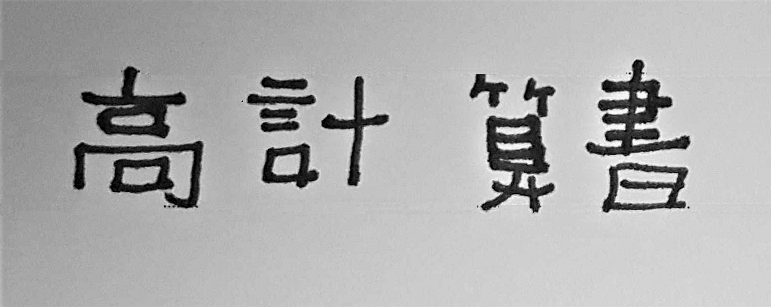 高計算書